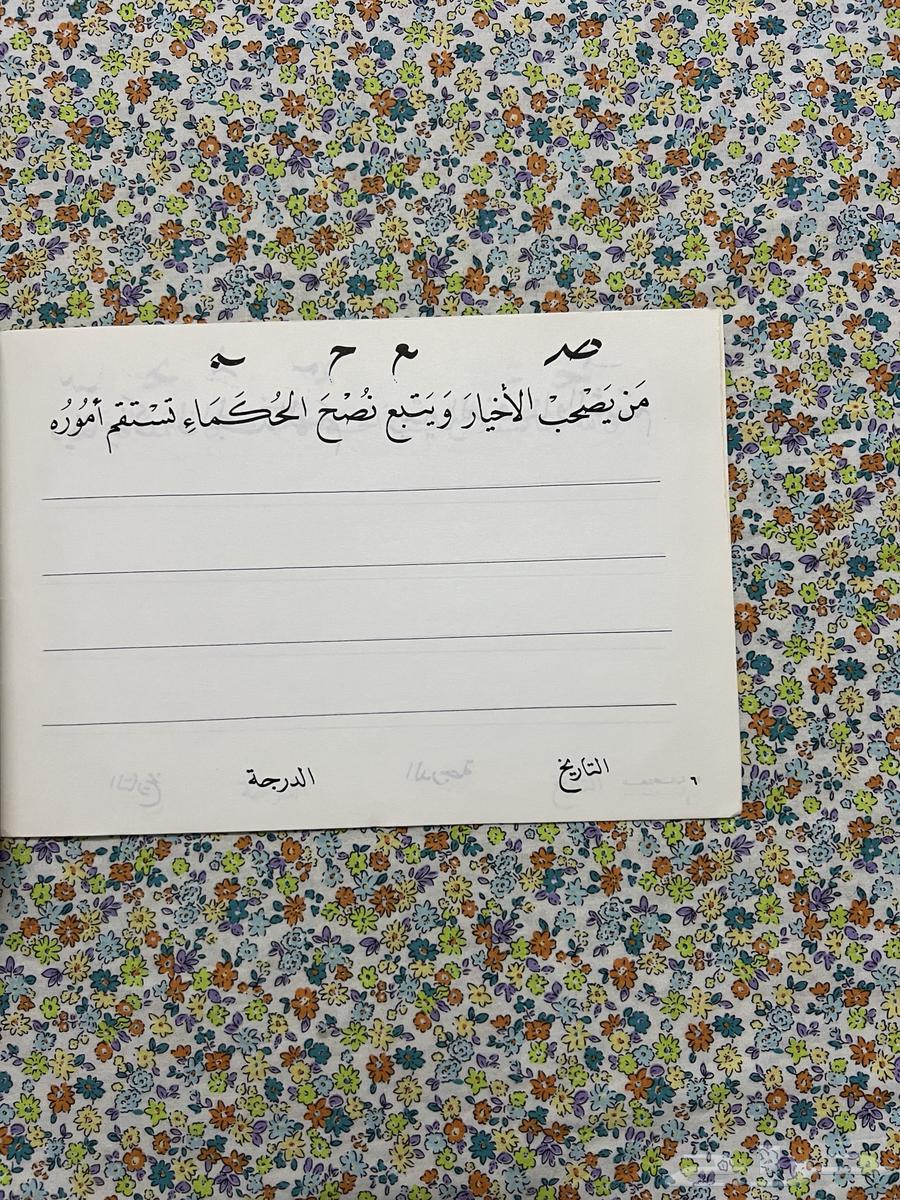 صـ ـع ح ـمـ
مَن يَصْحَبْ الأخيارَ وَيَتبع نُصْحَ الحُكَمَاءِ تَسْتقم أمُورُه
التاريخ الدرجة
٦